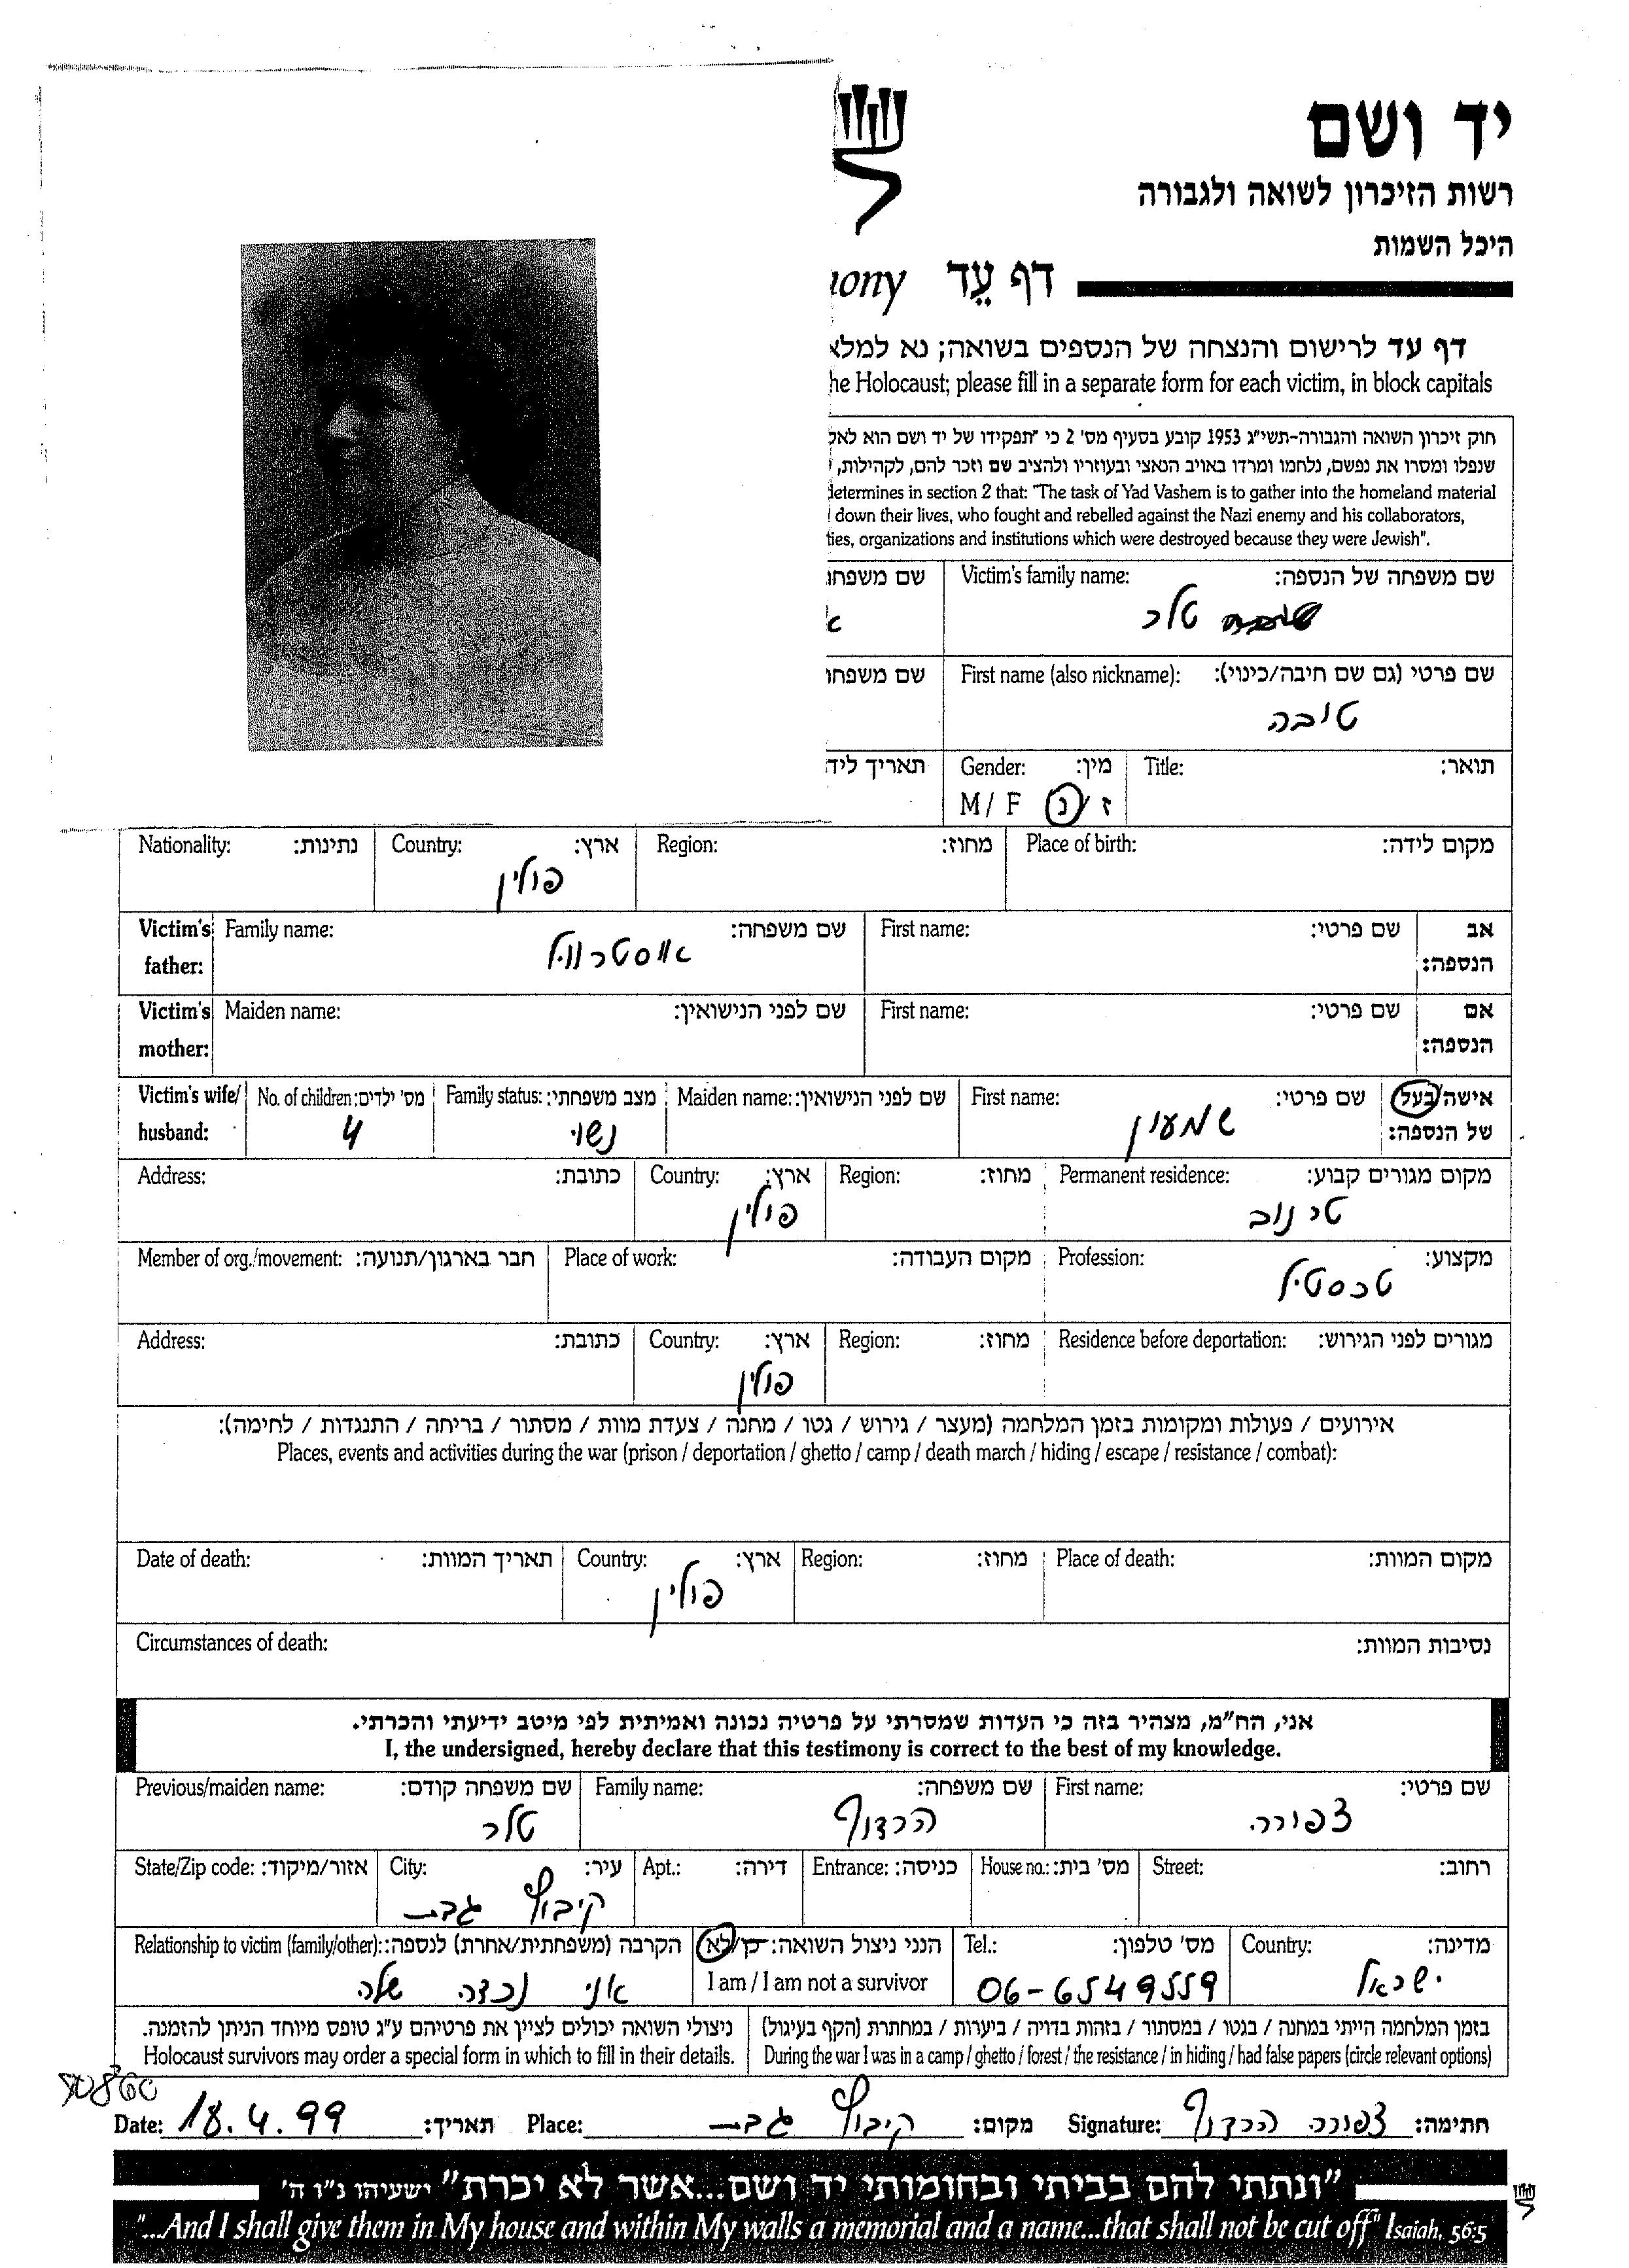 יד ושם
רשות הזיכרון לשואה ולגבורה
היכל השמות
דף עֵד
דף עד לרישום והנצחה של הנספים בשואה; נא למלא
he Holocaust; please fill in a separate form for each victim, in block capitals
חוק זיכרון השואה והגבורה-תשי"ג 1953 קובע בסעיף מס' 2 כי "תפקידו של יד ושם הוא לאס
שנפלו ומסרו את נפשם, נלחמו ומרדו באויב הנאצי ובעוזריו ולהציב שם וזכר להם, לקהילות,
determines in section 2 that: "The task of Yad Vashem is to gather into the homeland material
down their lives, who fought and rebelled against the Nazi enemy and his collaborators,
ties, organizations and institutions which were destroyed because they were Jewish".
שם משפחה של הנספה: Victim's family name: שם משפחו
טלר
שם פרטי (גם שם חיבה/כינוי): First name (also nickname): שם משפחו
טובה
תואר: Title: מין: Gender: תאריך ליד
ז/נ M / F
מקום לידה: Place of birth: מחוז: Region: ארץ: Country: נתינות: Nationality:
פולין
אב הנספה: שם פרטי: First name: שם משפחה: Family name: Victim's father:
אם הנספה: שם פרטי: First name: שם לפני הנישואין: Maiden name: Victim's mother:
אישה/בעל של הנספה: שם פרטי: First name: שם לפני הנישואין: Maiden name: מצב משפחתי: Family status: מס' ילדים: No. of children: Victim's wife/ husband:
שמעון נשוי 4
מקום מגורים קבוע: Permanent residence: מחוז: Region: ארץ: Country: כתובת: Address:
טרנוב פולין
מקצוע: Profession: מקום העבודה: Place of work: חבר בארגון/תנועה: Member of org./movement:
טכסטיל
מגורים לפני הגירוש: Residence before deportation: מחוז: Region: ארץ: Country: כתובת: Address:
פולין
אירועים / פעולות ומקומות בזמן המלחמה (מעצר / גירוש / גטו / מחנה / צעדת מוות / מסתור / בריחה / התנגדות / לחימה):
Places, events and activities during the war (prison / deportation / ghetto / camp / death march / hiding / escape / resistance / combat):
מקום המוות: Place of death: מחוז: Region: ארץ: Country: תאריך המוות: Date of death:
פולין
נסיבות המוות: Circumstances of death:
אני, הח"מ, מצהיר בזה כי העדות שמסרתי על פרטיה נכונה ואמיתית לפי מיטב ידיעתי והכרתי.
I, the undersigned, hereby declare that this testimony is correct to the best of my knowledge.
שם פרטי: First name: שם משפחה: Family name: שם משפחה קודם: Previous/maiden name:
צפורה הרדוף טלר
רחוב: Street: מס' בית: House no.: כניסה: Entrance: דירה: Apt.: עיר: City: אזור/מיקוד: State/Zip code:
קיבוץ גבת
מדינה: Country: מס' טלפון: Tel.: הנני ניצול השואה: כן/לא הקרבה (משפחתית/אחרת) לנספה: Relationship to victim (family/other):
ישראל 06-6549559 I am / I am not a survivor אני נכדה שלה
בזמן המלחמה הייתי במחנה / בגטו / במסתור / בזהות בדויה / ביערות / במחתרת (הקף בעיגול) ניצולי השואה יכולים לציין את פרטיהם ע"ג טופס מיוחד הניתן להזמנה.
During the war I was in a camp / ghetto / forest / the resistance / in hiding / had false papers (circle relevant options) Holocaust survivors may order a special form in which to fill in their details.
חתימה: צפורה הרדוף Signature: מקום: קיבוץ גבת Place: תאריך: 18.4.99 Date:
"ונתתי להם בביתי ובחומותי יד ושם...אשר לא יכרת" ישעיהו נ"ו ה'
"...And I shall give them in My house and within My walls a memorial and a name...that shall not be cut off" Isaiah, 56:5